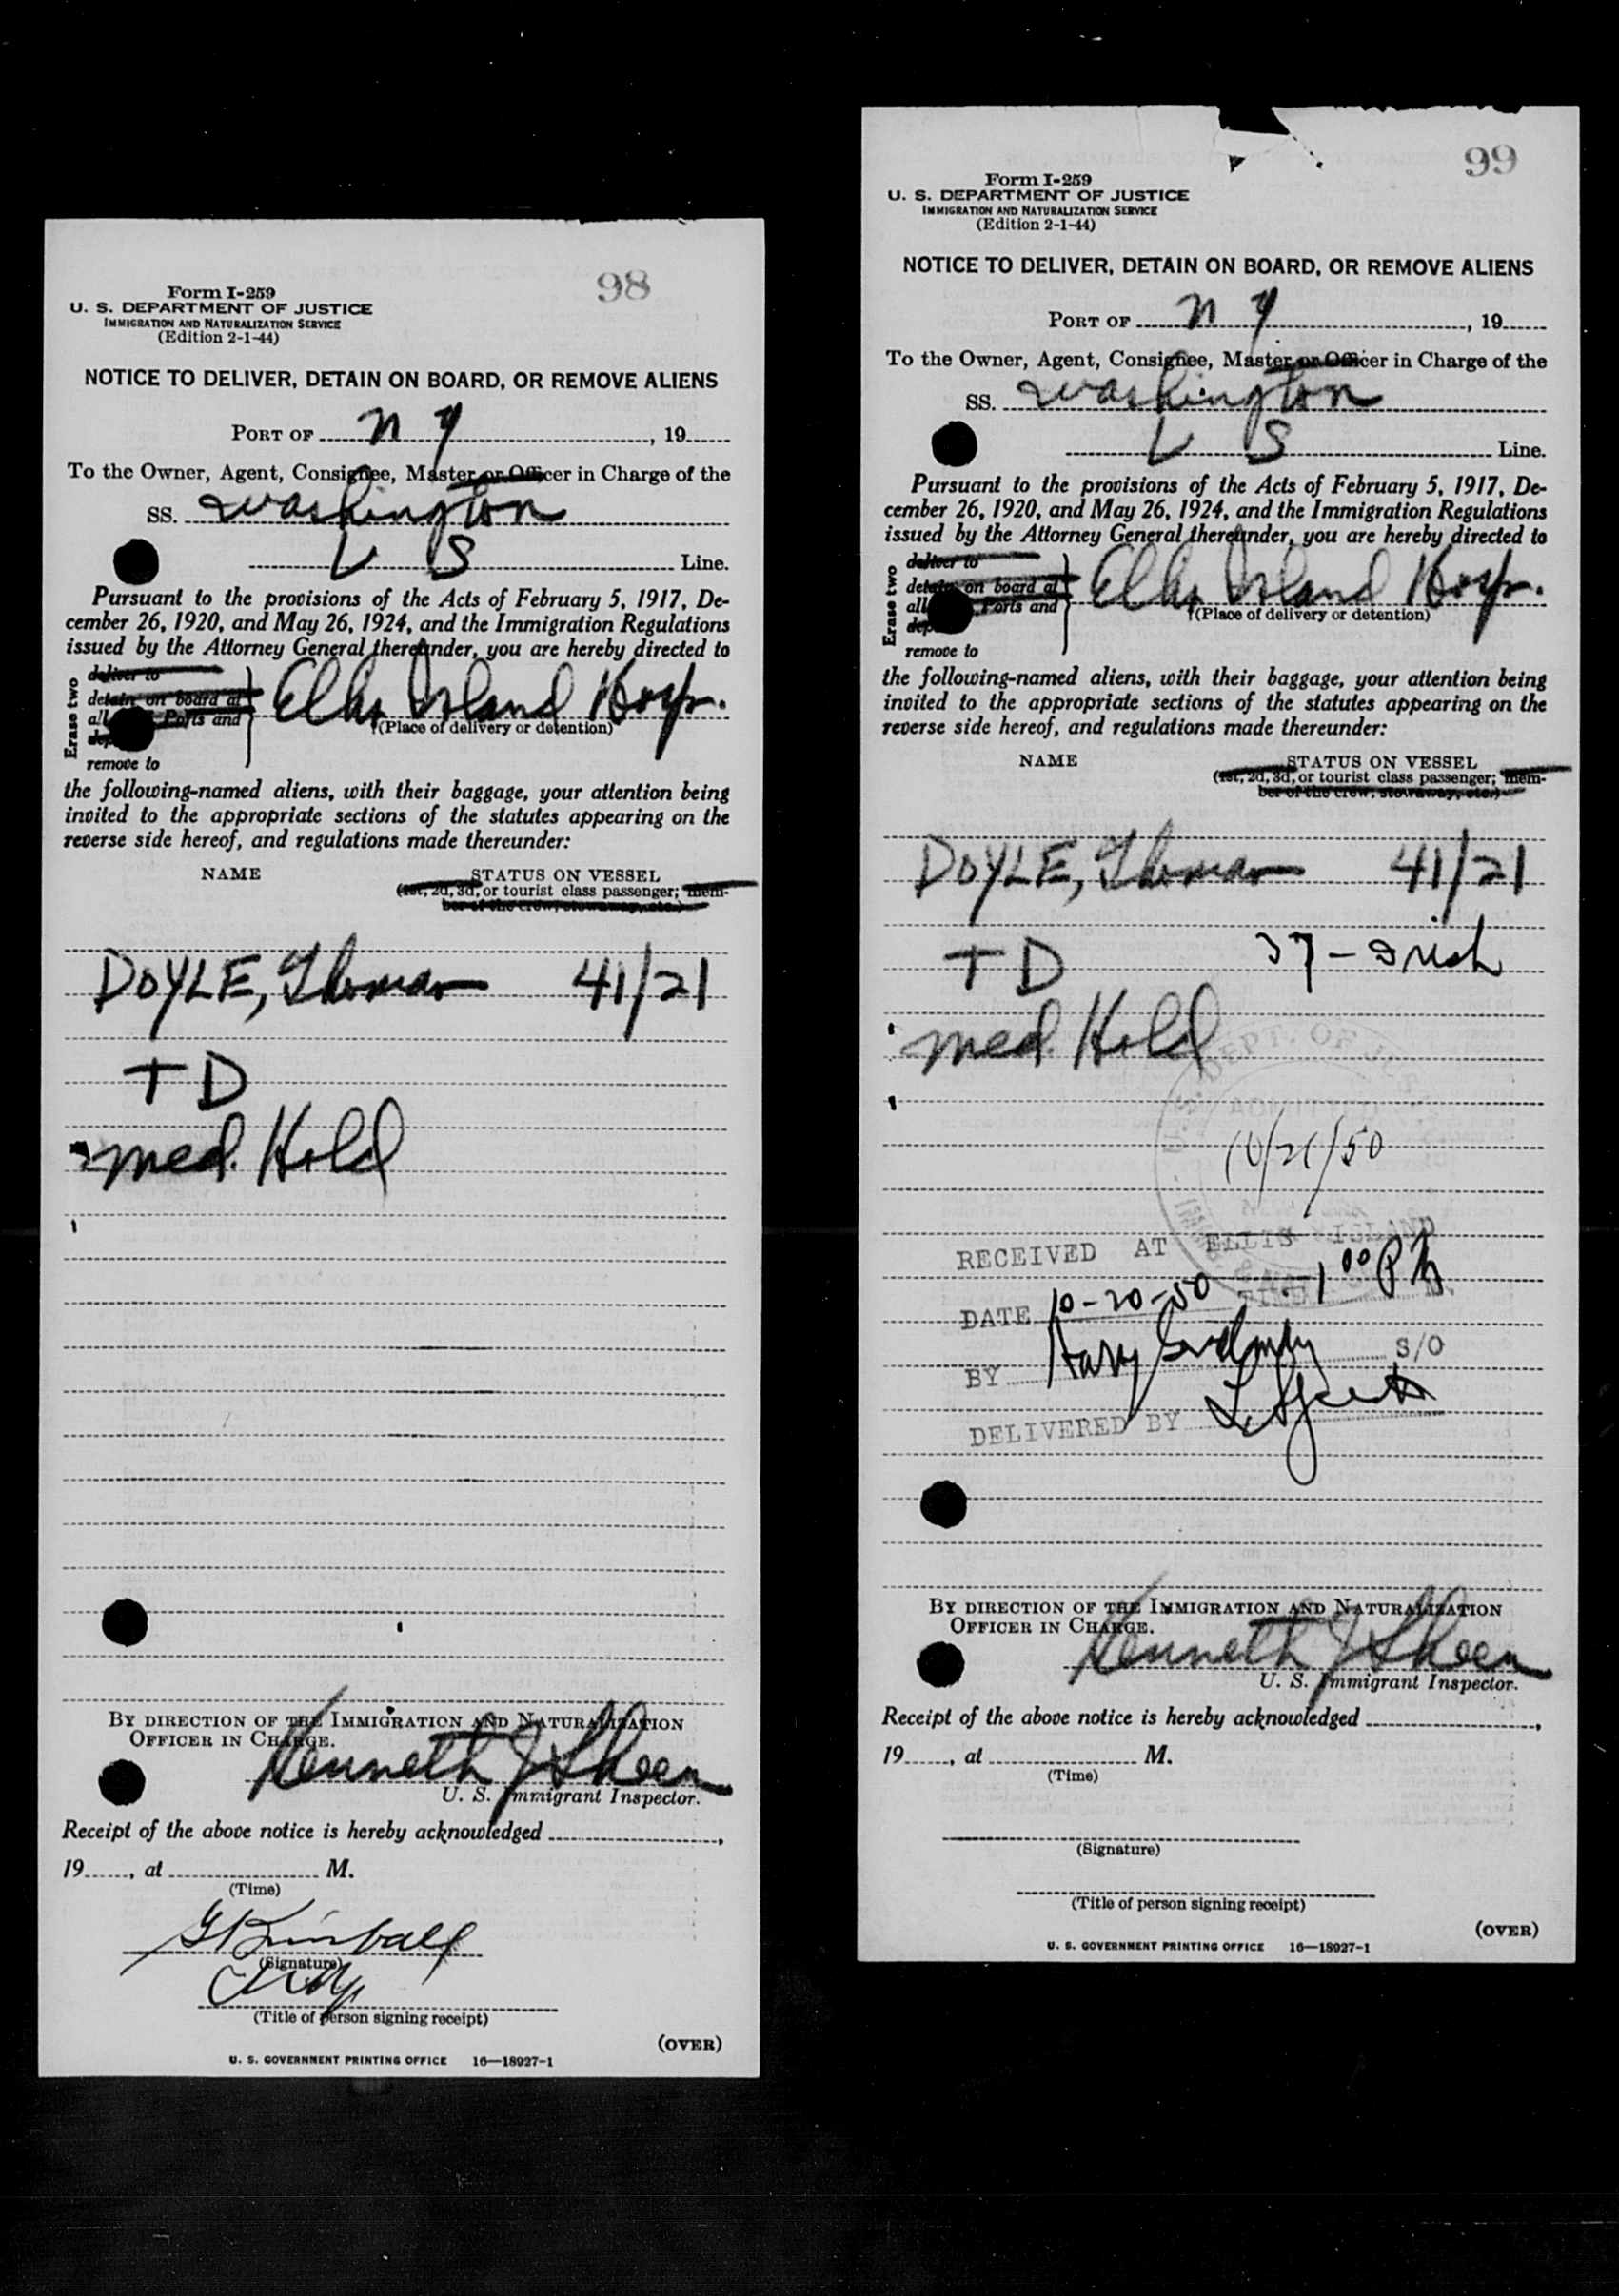 98
Form I-259
U. S. DEPARTMENT OF JUSTICE
IMMIGRATION AND NATURALIZATION SERVICE
(Edition 2-1-44)
NOTICE TO DELIVER, DETAIN ON BOARD, OR REMOVE ALIENS
PORT OF N Y, 19
To the Owner, Agent, Consignee, Master or Officer in Charge of the
SS. Washington
U S Line.
Pursuant to the provisions of the Acts of February 5, 1917, De-
cember 26, 1920, and May 26, 1924, and the Immigration Regulations
issued by the Attorney General thereunder, you are hereby directed to
Erase two
deliver to
detain on board at
all Ports and
remove to
Ellis Island Hosp.
(Place of delivery or detention)
the following-named aliens, with their baggage, your attention being
invited to the appropriate sections of the statutes appearing on the
reverse side hereof, and regulations made thereunder:
NAME STATUS ON VESSEL
(1st, 2d, 3d, or tourist class passenger; mem-
ber of the crew, stowaway, etc.)
DOYLE, Thomas 41/21
T D
med. Hold
BY DIRECTION OF THE IMMIGRATION AND NATURALIZATION
OFFICER IN CHARGE.
Kenneth J Sheen
U. S. Immigrant Inspector.
Receipt of the above notice is hereby acknowledged ,
19 , at M.
(Time)
G Kimball
(Signature)
(Title of person signing receipt)
(OVER)
U. S. GOVERNMENT PRINTING OFFICE 16—18927-1
99
Form I-259
U. S. DEPARTMENT OF JUSTICE
IMMIGRATION AND NATURALIZATION SERVICE
(Edition 2-1-44)
NOTICE TO DELIVER, DETAIN ON BOARD, OR REMOVE ALIENS
PORT OF N Y, 19
To the Owner, Agent, Consignee, Master or Officer in Charge of the
SS. Washington
U S Line.
Pursuant to the provisions of the Acts of February 5, 1917, De-
cember 26, 1920, and May 26, 1924, and the Immigration Regulations
issued by the Attorney General thereunder, you are hereby directed to
Erase two
deliver to
detain on board at
all Ports and
remove to
Ellis Island Hosp.
(Place of delivery or detention)
the following-named aliens, with their baggage, your attention being
invited to the appropriate sections of the statutes appearing on the
reverse side hereof, and regulations made thereunder:
NAME STATUS ON VESSEL
(1st, 2d, 3d, or tourist class passenger; mem-
ber of the crew, stowaway, etc.)
DOYLE, Thomas 41/21
T D 37 - Irish
med. Hold
U. S. DEPT. OF JUSTICE
ADMITTED
10/21/50
RECEIVED AT ELLIS ISLAND
DATE 10-20-50 TIME 1 00 P M.
BY Harry S/O
DELIVERED BY
BY DIRECTION OF THE IMMIGRATION AND NATURALIZATION
OFFICER IN CHARGE.
Kenneth J Sheen
U. S. Immigrant Inspector.
Receipt of the above notice is hereby acknowledged ,
19 , at M.
(Time)
(Signature)
(Title of person signing receipt)
(OVER)
U. S. GOVERNMENT PRINTING OFFICE 16—18927-1